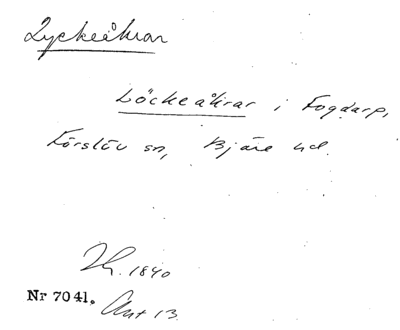 Lyckeåkrar
Löckeåkrar i Fogdarp,
Förslöv sn, Bjäre hd.
1840
Nr 7041. Akt 13